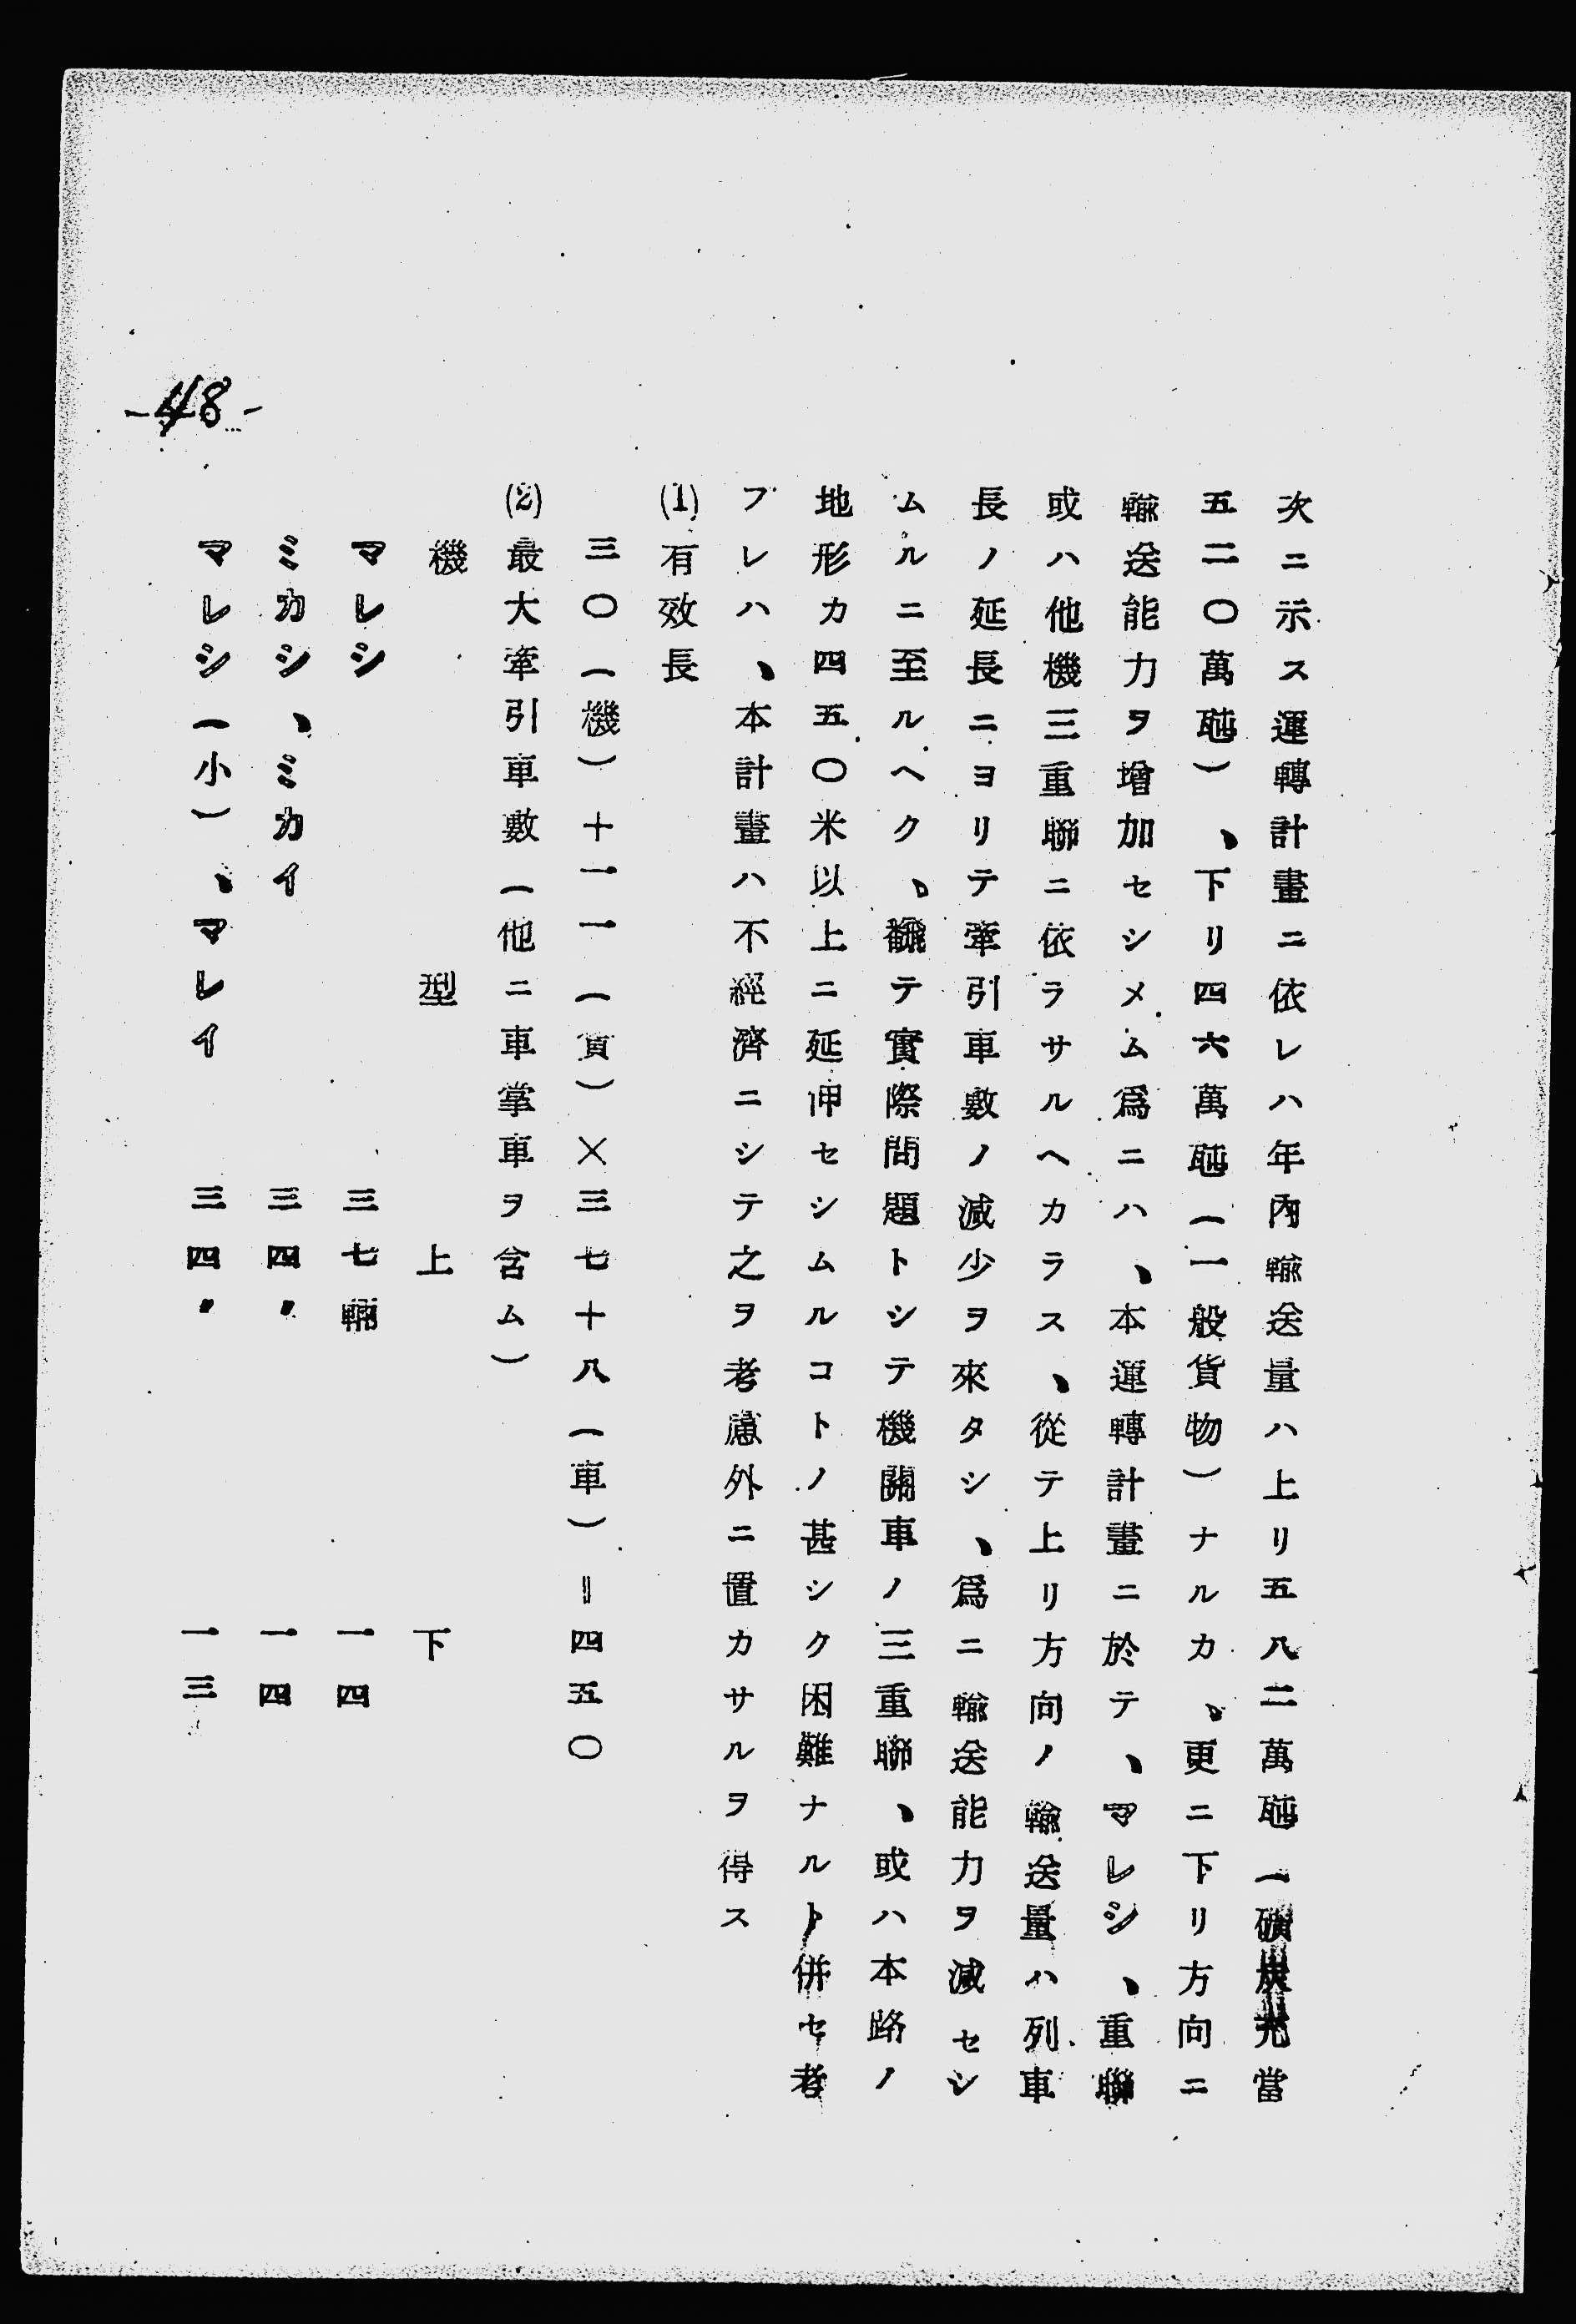 次ニ示ス運轉計畫ニ依レハ年內輸送量ハ上リ五八二萬瓲（礦炭充當
五二〇萬瓲）、下リ四六萬瓲（一般貨物）ナルカ、更ニ下リ方向ニ
輸送能力ヲ增加セシメム爲ニハ、本運轉計畫ニ於テ、マレシ、重聯
或ハ他機三重聯ニ依ラサルヘカラス、從テ上リ方向ノ輸送量ハ列車
長ノ延長ニヨリテ牽引車數ノ減少ヲ來タシ、爲ニ輸送能力ヲ減セシ
ムルニ至ルヘク、飜テ實際問題トシテ機關車ノ三重聯、或ハ本路ノ
地形カ四五〇米以上ニ延伸セシムルコトノ甚シク困難ナルト併セ考
フレハ、本計畫ハ不經濟ニシテ之ヲ考慮外ニ置カサルヲ得ス
(1)有效長
三〇（機）十一一（貨）×三七十八（車）＝四五〇
(2)最大牽引車數（他ニ車掌車ヲ含ム）
機 型 上 下
マレシ 三七輛 一四
ミカシ、ミカイ 三四〃 一四
マレシ（小）、マレイ 三四〃 一三
-48-